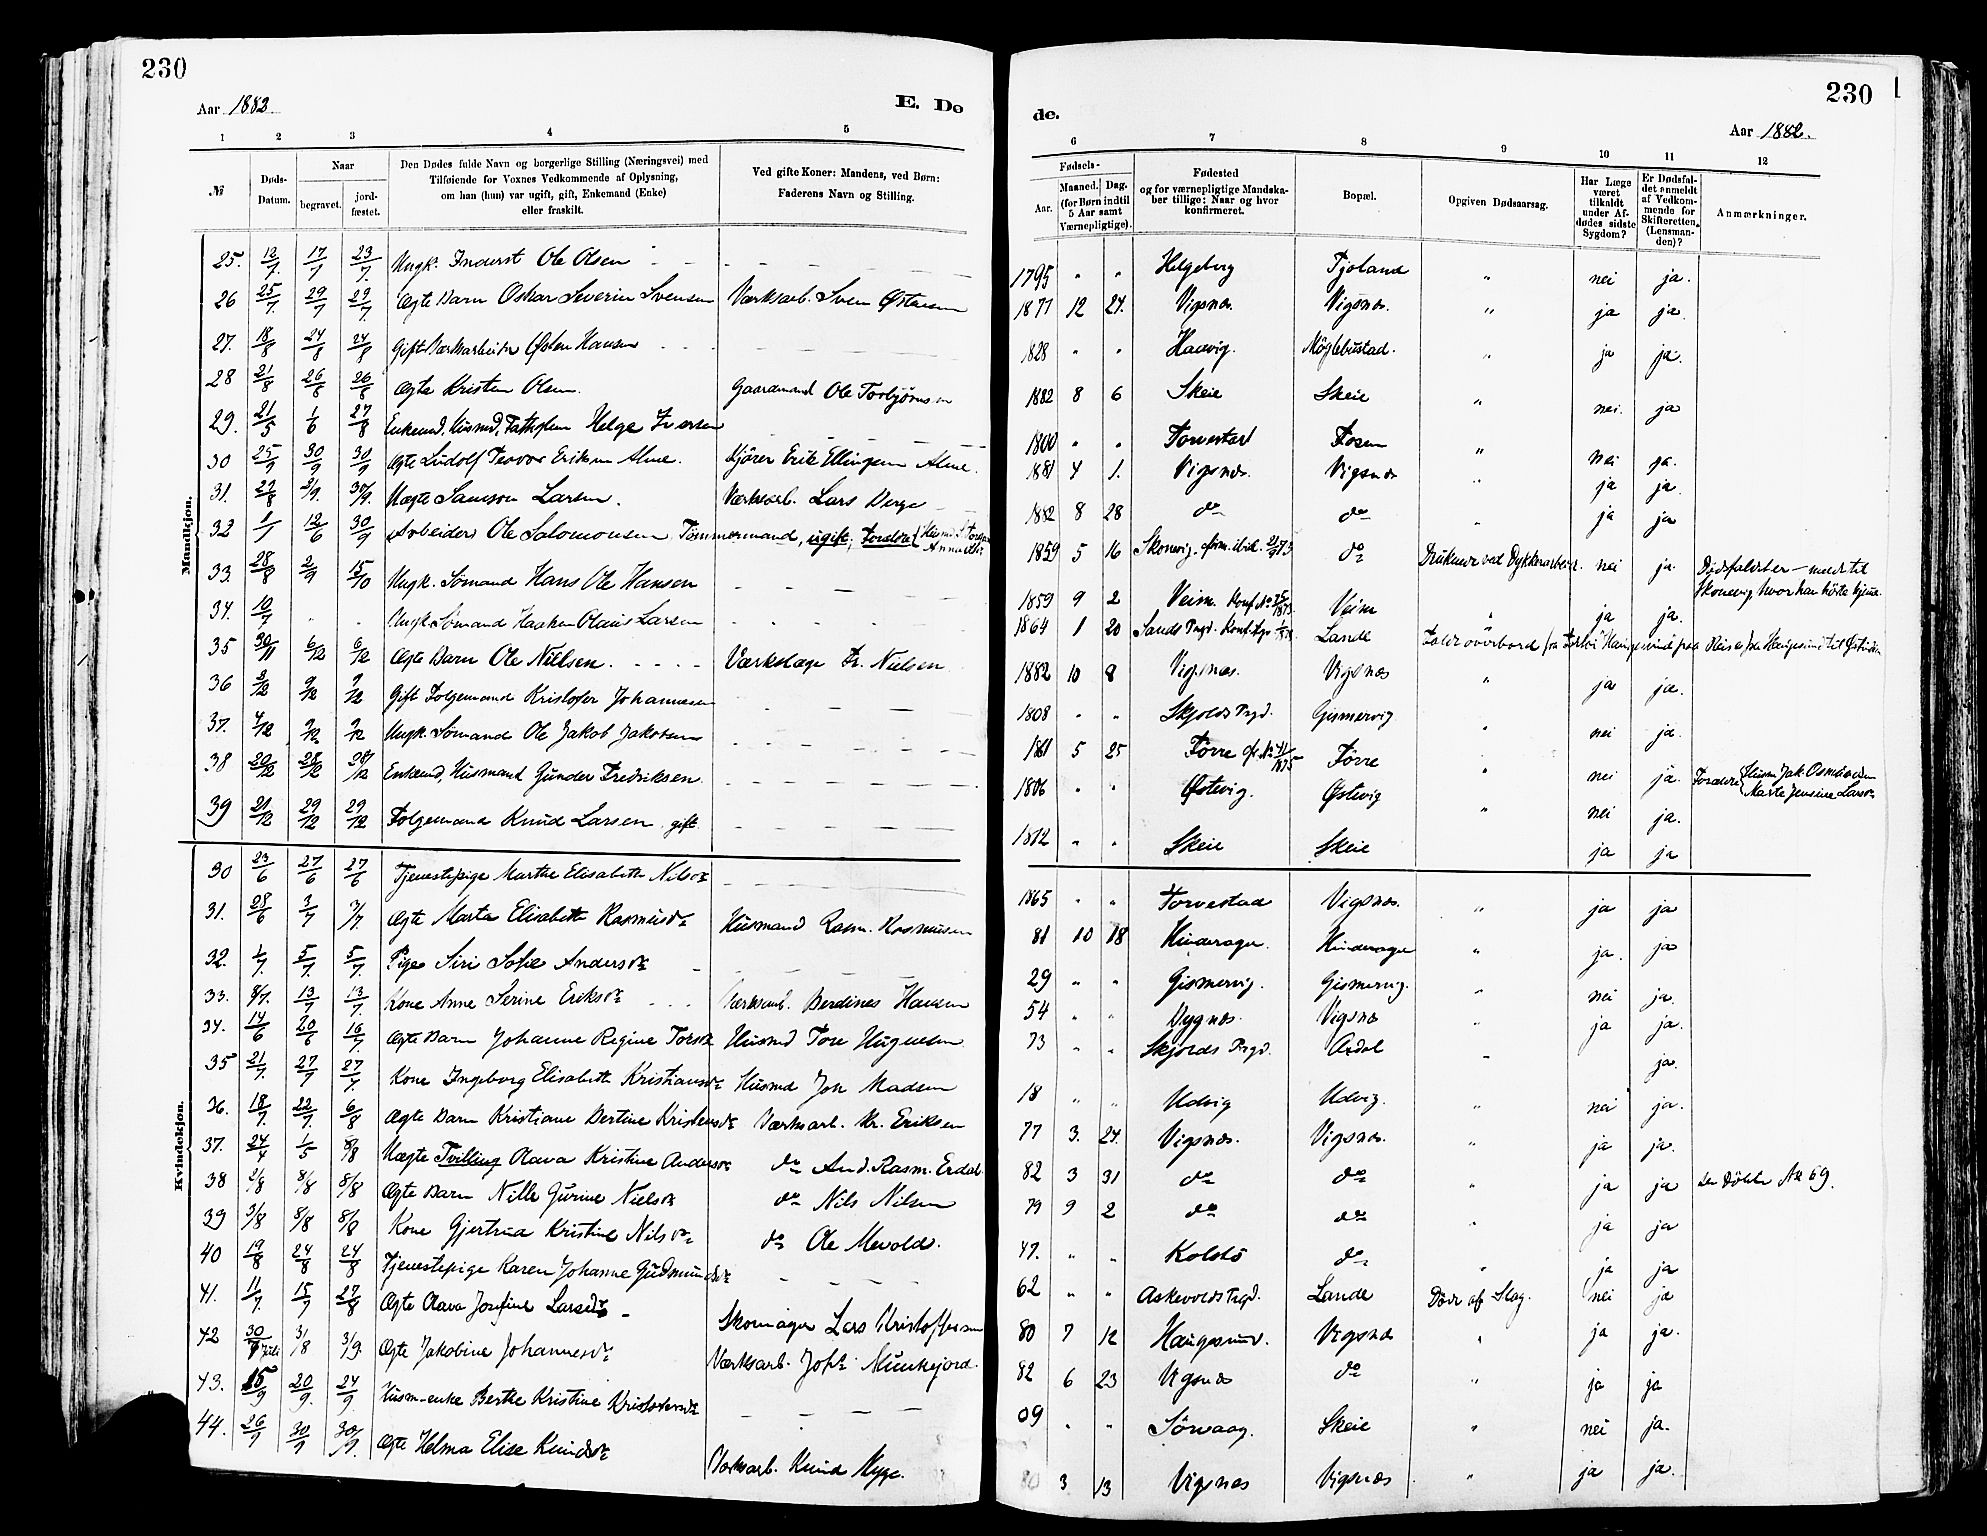 230
Aar 1882.
E. Do
1 2 3 4 5
№
Døds-Datum.
Naar
begravet.
jord-fæstet.
Den Dødes fulde Navn og borgerlige Stilling (Næringsvei) med
Tilføiende for Voxnes Vedkommende af Oplysning,
om han (hun) var ugift, gift, Enkemand (Enke)
eller fraskilt.
Ved gifte Koner: Mandens, ved Børn:
Faderens Navn og Stilling.
Mandkjøn.
25. 17/7 23/7 Ungk. Inderst Ole Olsen
26 25/7 29/7 29/7 Ægte Barn Oskar Severin Svensen Værksarb. Sven Østensen
27. 18/8 24/8 24/8 Gift Værksarbeider Østen Hansen
28 21/8 26/8 26/8 Ægte Kristen Olsen. Gaardmand Ole Torbjørnsen
29. 21/5 1/6 27/8 Enkemd. Husmd. Helge Iversen
30 25/9 30/9 30/9 Ægte Ludolf Teodor Eriksen Alme. Kjører Erik Ellingsen Alme.
31. 29/8 2/9. 30/9. Uægte Samson Larsen. Værksarb. Lars Berge
32 12/6 30/9 Arbeider Ole Salomonsen Tømmermand, ugift, Forældre
33. 28/8 2/9 15/10 Ungk. Sømand Hans Ole Hansen
34. 10/7 Ungk. Sømand Haaken Olaus Larsen
35 30/11 6/12 6/12 Ægte Barn Ole Nielsen. Fr. Nielsen
36 2/12 9/12 9/12 Gift Folgemand Kristofer Johannesen
37. 4/12 9/12 9/12 Ungk. Sømand Ole Jakob Jakobsen
38 20/12 28/12 28/12 Enkemd, Husmand Gunder Fredriksen
39 21/12 29/12 29/12 Folgemand Knud Larsen. gift.
Kvindekjøn.
30 23/6 27/6 27/6 Tjenestepige Marthe Elisabeth Nilsdr
31. 28/6 3/7 3/7 Ægte Marta Elisabeth Rasmusdr Husmand Rasm. Rasmusen
32. 1/7. 5/7. 5/7. Pige Siri Sofie Andersdr
33. 8/7. 13/7 13/7 Kone Anne Serine Eriksdr Værksarb. Berdines Hansen
34. 14/6 20/6 16/7. Ægte Barn Johanne Regine Toresdr Husmd Tore
35 21/7. 27/7 27/7. Kone Ingeborg Elisabeth Kristiansdr Husmd Jon Madsen
36. 18/7. 22/7. 6/8 Ægte Barn Kristiane Bertine Kristensdr Værksarb. Kr. Eriksen
37. 24/4 1/5 8/8 Uægte Tvilling Olava Kristine Andersdr do And. Rasm. Erdal
38 2/8 8/8 8/8 Ægte Barn Nille Gurine Nielsdr do Nils Nilsen
39 3/8 8/8 8/8 Kone Gjertrud Kristine Nilsdr. do Ole Mevold.
40 19/8 24/8 24/8 Tjenestepige Karen Johanne Gudmundsdr
41. 11/7 15/7 27/8 Ægte Olava Josefine Larsdr Skomager Lars Kristoffersen
42 30/7 Juli 31/8 3/9. Ægte Jakobine Johannesdr Værksarb. Johs Munkejord.
43. 15/9 20/9. 24/9 Husm-enke Berthe Kristine
44. 26/9 30/9 30/9. Ægte Helma Elise Knudsdr Værksarb. Knud Myge.
de.
230
Aar 1882.
6 7 8 9 10 11 12
Fødsels-
Aar.
Maaned.
Dag.
(for Børn indtil
5 Aar samt
Værnepligtige).
Fødested
og for værnepligtige Mandska-
ber tillige: Naar og hvor
konfirmeret.
Bopæl.
Opgiven Dødsaarsag.
Har Læge
været
tilkaldt
under Af-
dødes sidste
Sygdom?
Er Dødsfal-
det anmeldt
af Vedkom-
mende for
Skifteretten,
(Lensman-
den)?
Anmærkninger.
1795 " " Helgeberg Tjoland " nei ja.
1871 12 24. Vigsnæs. Vigsnæs. " ja ja.
1828 " " Hauvig. Møglebustad. " ja ja.
1882 8 6 Skeie Skeie " nei. ja
1800 " " Torvestad Fosen " nei ja.
1881 4 1. Vigsnæs. Vigsnæs " ja ja.
1882 8 28 do do " ja ja
1859 5 16 Skonevig. do Druknede ved Dykkerarbeide. nei ja. Dødsfaldet er meldt til
Skonevig hvor han hørte hjem.
1859 9 2 Veim. Konf. Veim " ja ja.
1864 1 20 Sands Prgd. Lande Faldt overbord fra Reise fra Haugesund til
1882 10 8 Vigsnæs. Vigsnæs " ja ja.
1808 " " Skjolds Prgd. Gismervig " nei ja.
1861 5 25 Førre Førre " nei ja. Forældre Husm. Jak. Osmundsen
Marte Jensine Larsdr
1806 " " Østevig. Østevig " nei ja.
1812 " " Skeie Skeie ja ja
1865 " " Torvestad Vigsnæs. " ja ja
81 10 18 Hinderager. Hinderager " ja. ja
29 " " Gismervig. Gismervig. " nei ja.
54 " " Vygnæs. Vigsnæs " ja ja.
73 " " Skjolds Prgd. " ja.
18 " " Udvig Udvig. " nei ja.
77 3. 24. Vigsnæs. Vigsnæs. " ja ja.
82 3 31 do do " ja ja se Døbte № 69.
79 9 2 do do " ja ja
47. " " Kolstø do " ja ja
62 " " Askevolds Prgd. Lande Døde af Slag. nei ja
80 7 12 Haugesund. Vigsnæs " ja ja.
82 6 23 Vigsnæs do " ja ja
09 " " Sørvaag. Skeie " nei ja.
80 3 13 Vigsnæs Vigsnæs " ja ja.